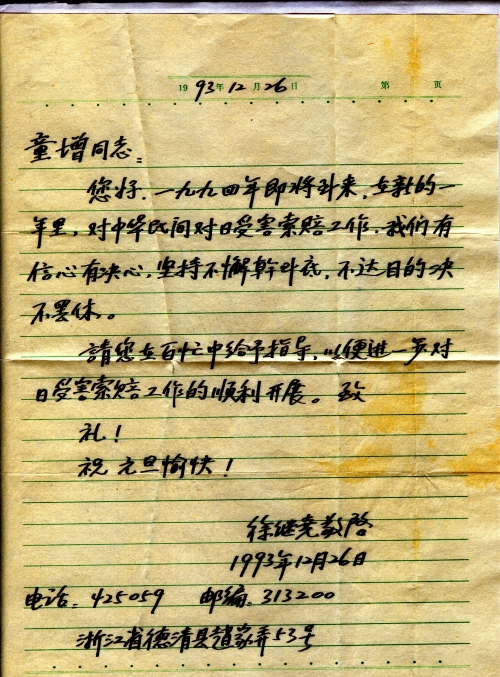 1993年12月26日 第 页
童增同志：
您好，一九九四年即将到来，在新的一
年里，对中华民间对日受害索赔工作，我们有
信心有决心，坚持不懈幹到底，不达目的决
不罢休。
請您在百忙中给予指导，以便进一步对
日受害索赔工作的顺利开展。致
礼！
祝元旦愉快！
徐继尧敬啓
1993年12月26日
电话：425059 邮编：313200
浙江省德清县趙家弄53号